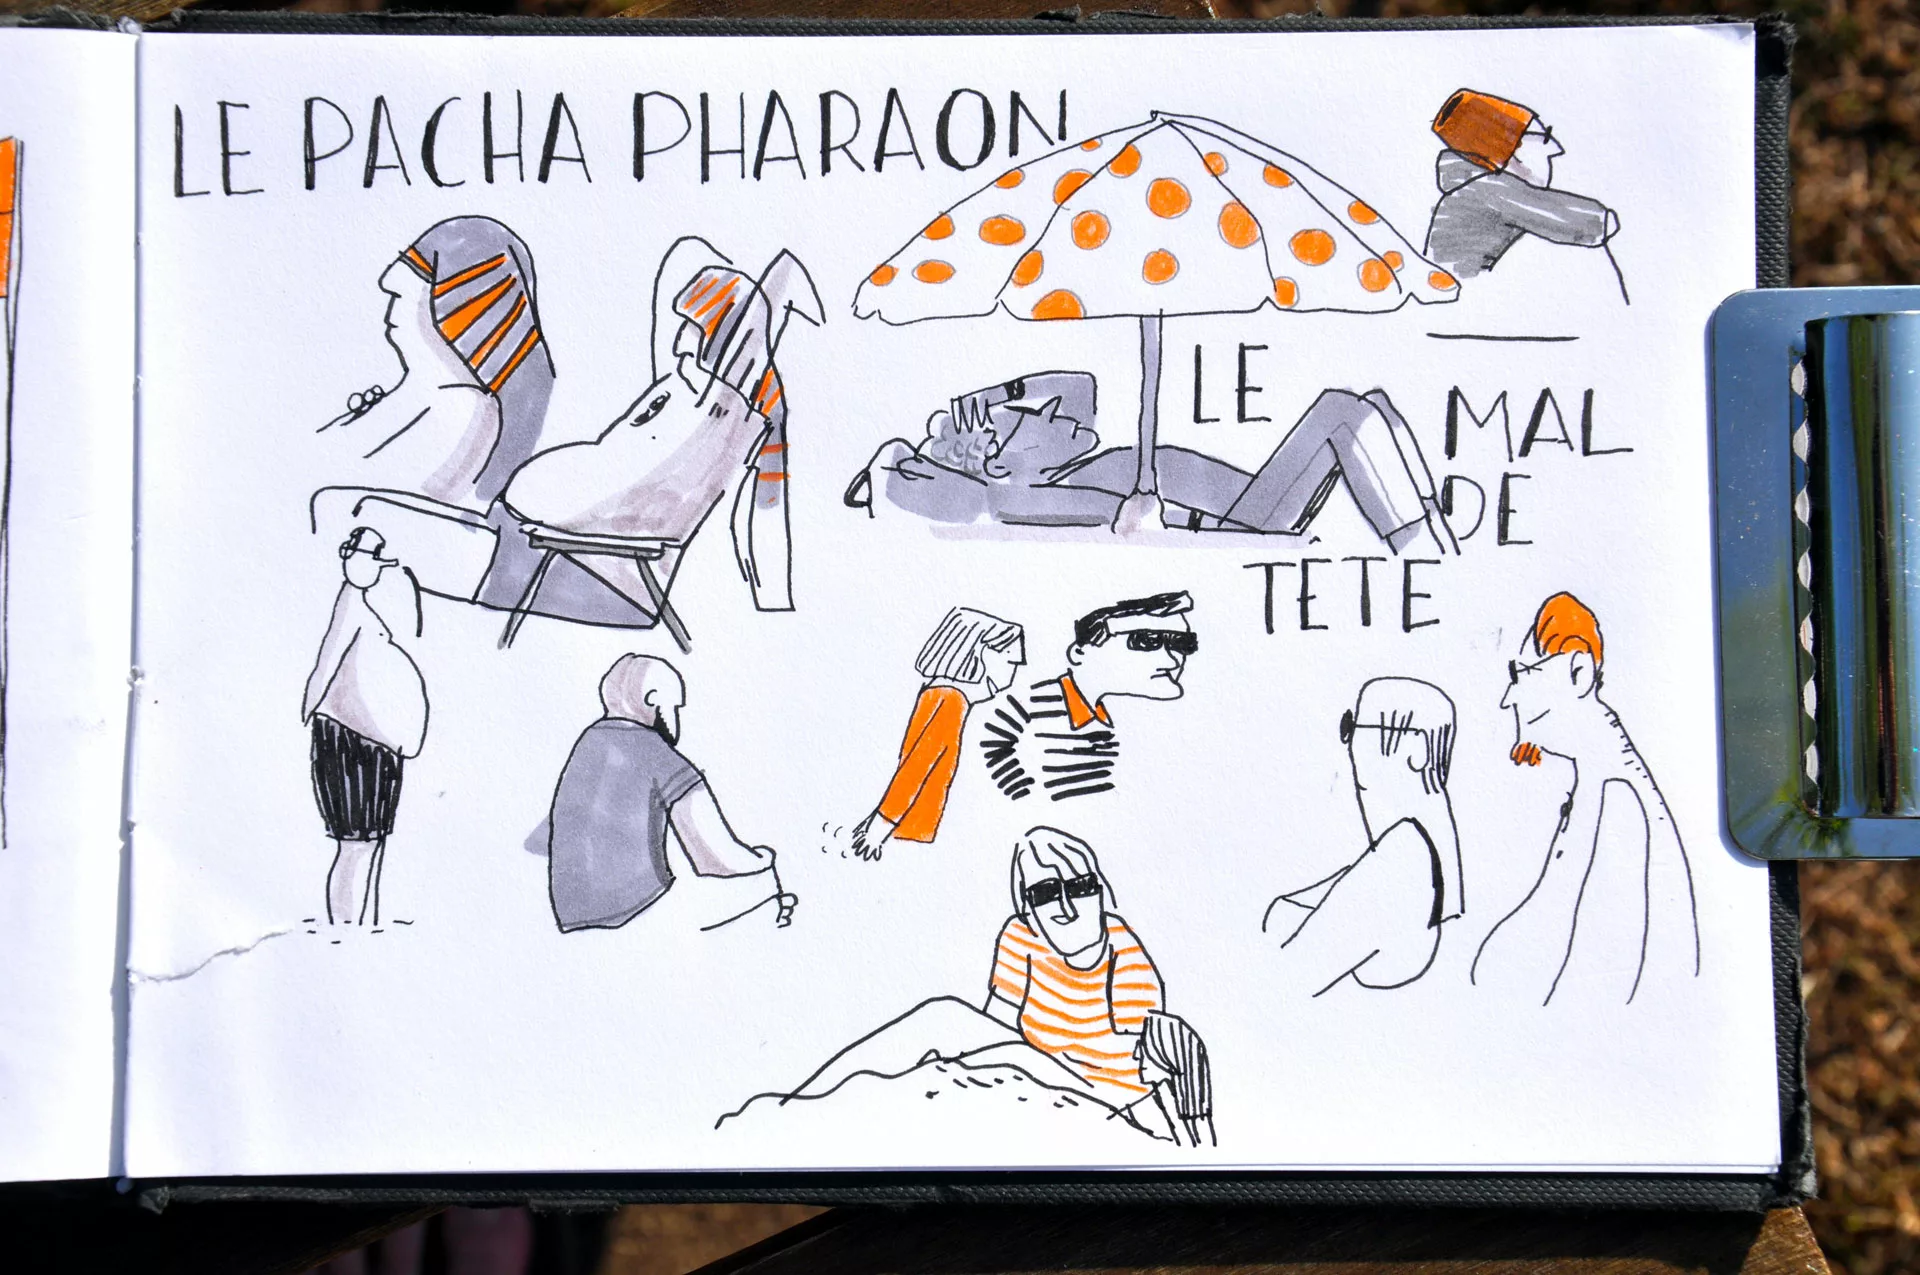 LE PACHA PHARAON
LE
MAL
DE
TÊTE